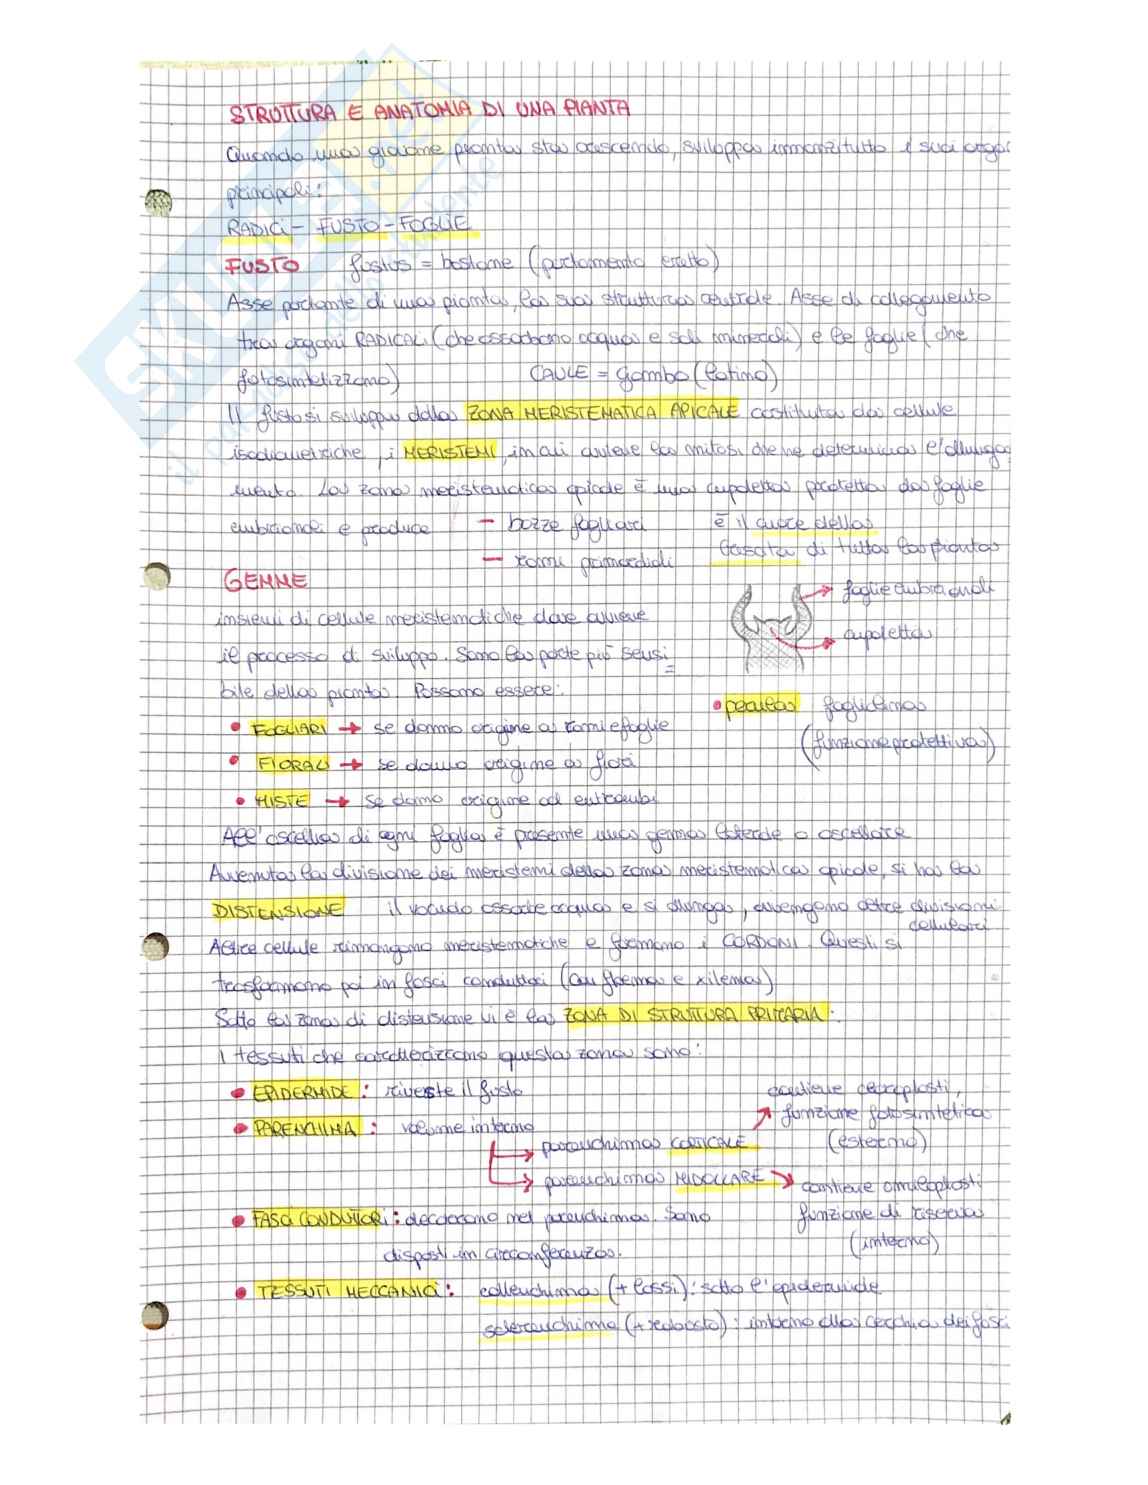 STRUTTURA E ANATOMIA DI UNA PIANTA
Quando una giovane pianta sta crescendo, sviluppa innanzitutto i suoi orga
principali:
RADICI - FUSTO - FOGLIE
FUSTO fustus = bastone (portamento eretto)
Asse portante di una pianta, la sua struttura centrale. Asse di collegamento
tra organi RADICALI (che assorbono acqua e sali minerali) e le foglie (che
fotosintetizzano) CAULE = gambo (latino)
Il fusto si sviluppa dalla ZONA MERISTEMATICA APICALE costituita da cellule
isodiametriche, i MERISTEMI, in cui avviene la mitosi che ne determina l'allunga
mento. La zona meristematica apicale è una cupoletta protetta da foglie
embrionali e produce - bozze fogliari è il cuore della
- rami primordiali crescita di tutta la pianta
GEMME
foglie embrionali
insiemi di cellule meristematiche dove avviene
cupoletta
il processo di sviluppo. Sono la parte più sensi
bile della pianta. Possono essere:
• perula foglielina
• FOGLIARI → se danno origine a rami e foglie
(funzione protettiva)
• FIORALI → se danno origine a fiori
• MISTE → se danno origine ad entrambi
All'ascella di ogni foglia è presente una gemma laterale o ascellare
Avvenuta la divisione dei meristemi della zona meristematica apicale, si ha la
DISTENSIONE il vacuolo assorbe acqua e si allunga, avvengono altre divisioni
cellulari
Altre cellule rimangono meristematiche e formano i CORDONI. Questi si
trasformano poi in fasci conduttori (con floema e xilema)
Sotto la zona di distensione vi è la ZONA DI STRUTTURA PRIMARIA:
I tessuti che caratterizzano questa zona sono:
• EPIDERMIDE: riveste il fusto
• PARENCHIMA: volume interno
→ parenchima CORTICALE
contiene cloroplasti,
funzione fotosintetica
(esterno)
→ parenchima MIDOLLARE
contiene amiloplasti
funzione di riserva
(interno)
• FASCI CONDUTTORI: decorrono nel parenchima. Sono
disposti in circonferenza.
• TESSUTI MECCANICI: collenchima (+ lassi): sotto l'epidermide
sclerenchima (+ robusto): intorno alla cerchia dei fasci
SKUOLA.net